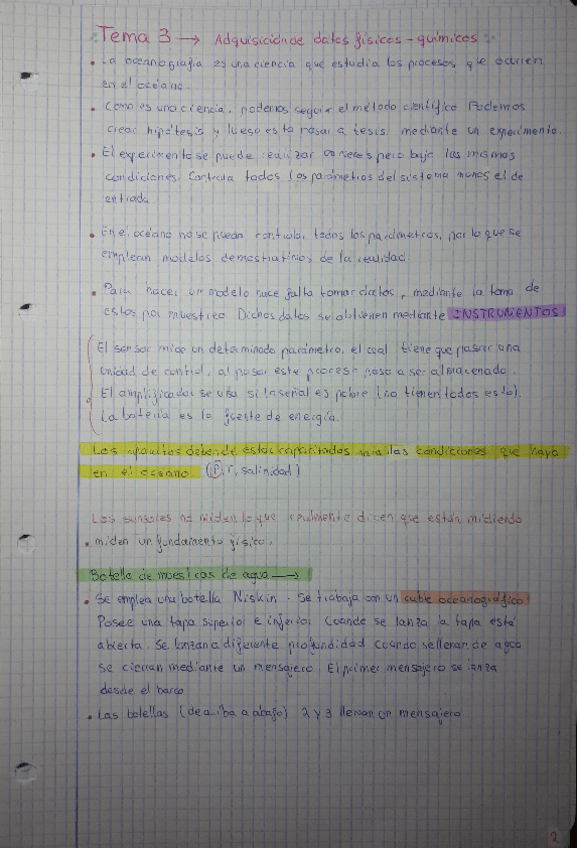 Tema 3 → Adquisición de datos físicos - químicos
• La oceanografía es una ciencia que estudia los procesos que ocurren
en el océano.
• Como es una ciencia, podemos seguir el método científico Podemos
crear hipótesis y luego esta pasar a tesis mediante un experimento.
• El experimento se puede realizar veces pero bajo las mismas
condiciones. Controla todos los parámetros del sistema menos el de
entrada
• En el océano no se puedn controlar todos los parámetros, por lo que se
emplean modelos demostrativos de la realidad
• Para hacer un modelo hace falta tomar datos, mediante la toma de
estos por muestreo Dichos datos se obtienen mediante INSTRUMENTOS
El sensor mide un determinado parámetro, el cual tiene que pasar a una
unidad de control, al pasar este proceso pasa a ser almacenado.
El amplificador se usa si la señal es pobre (no tienen todos esto).
La batería es la fuente de energía.
Los aparatos deben de estar capacitados para las condiciones que haya
en el océano (P, T, salinidad)
Los sensores no miden lo que realmente dicen que están midiendo
• miden un fundamento físico.
Botella de muestras de agua →
• Se emplea una botella Niskin. Se trabaja con un cable oceanográfico
Posee una tapa superior e inferior Cuando se lanza la tapa está
abierta. Se lanzan a diferente profundidad Cuando se llenan de agua
se cierran mediante un mensajero. El primer mensajero se lanza
desde el barco
• Las botellas (de arriba a abajo) 2 y 3 llevan un mensajero
2